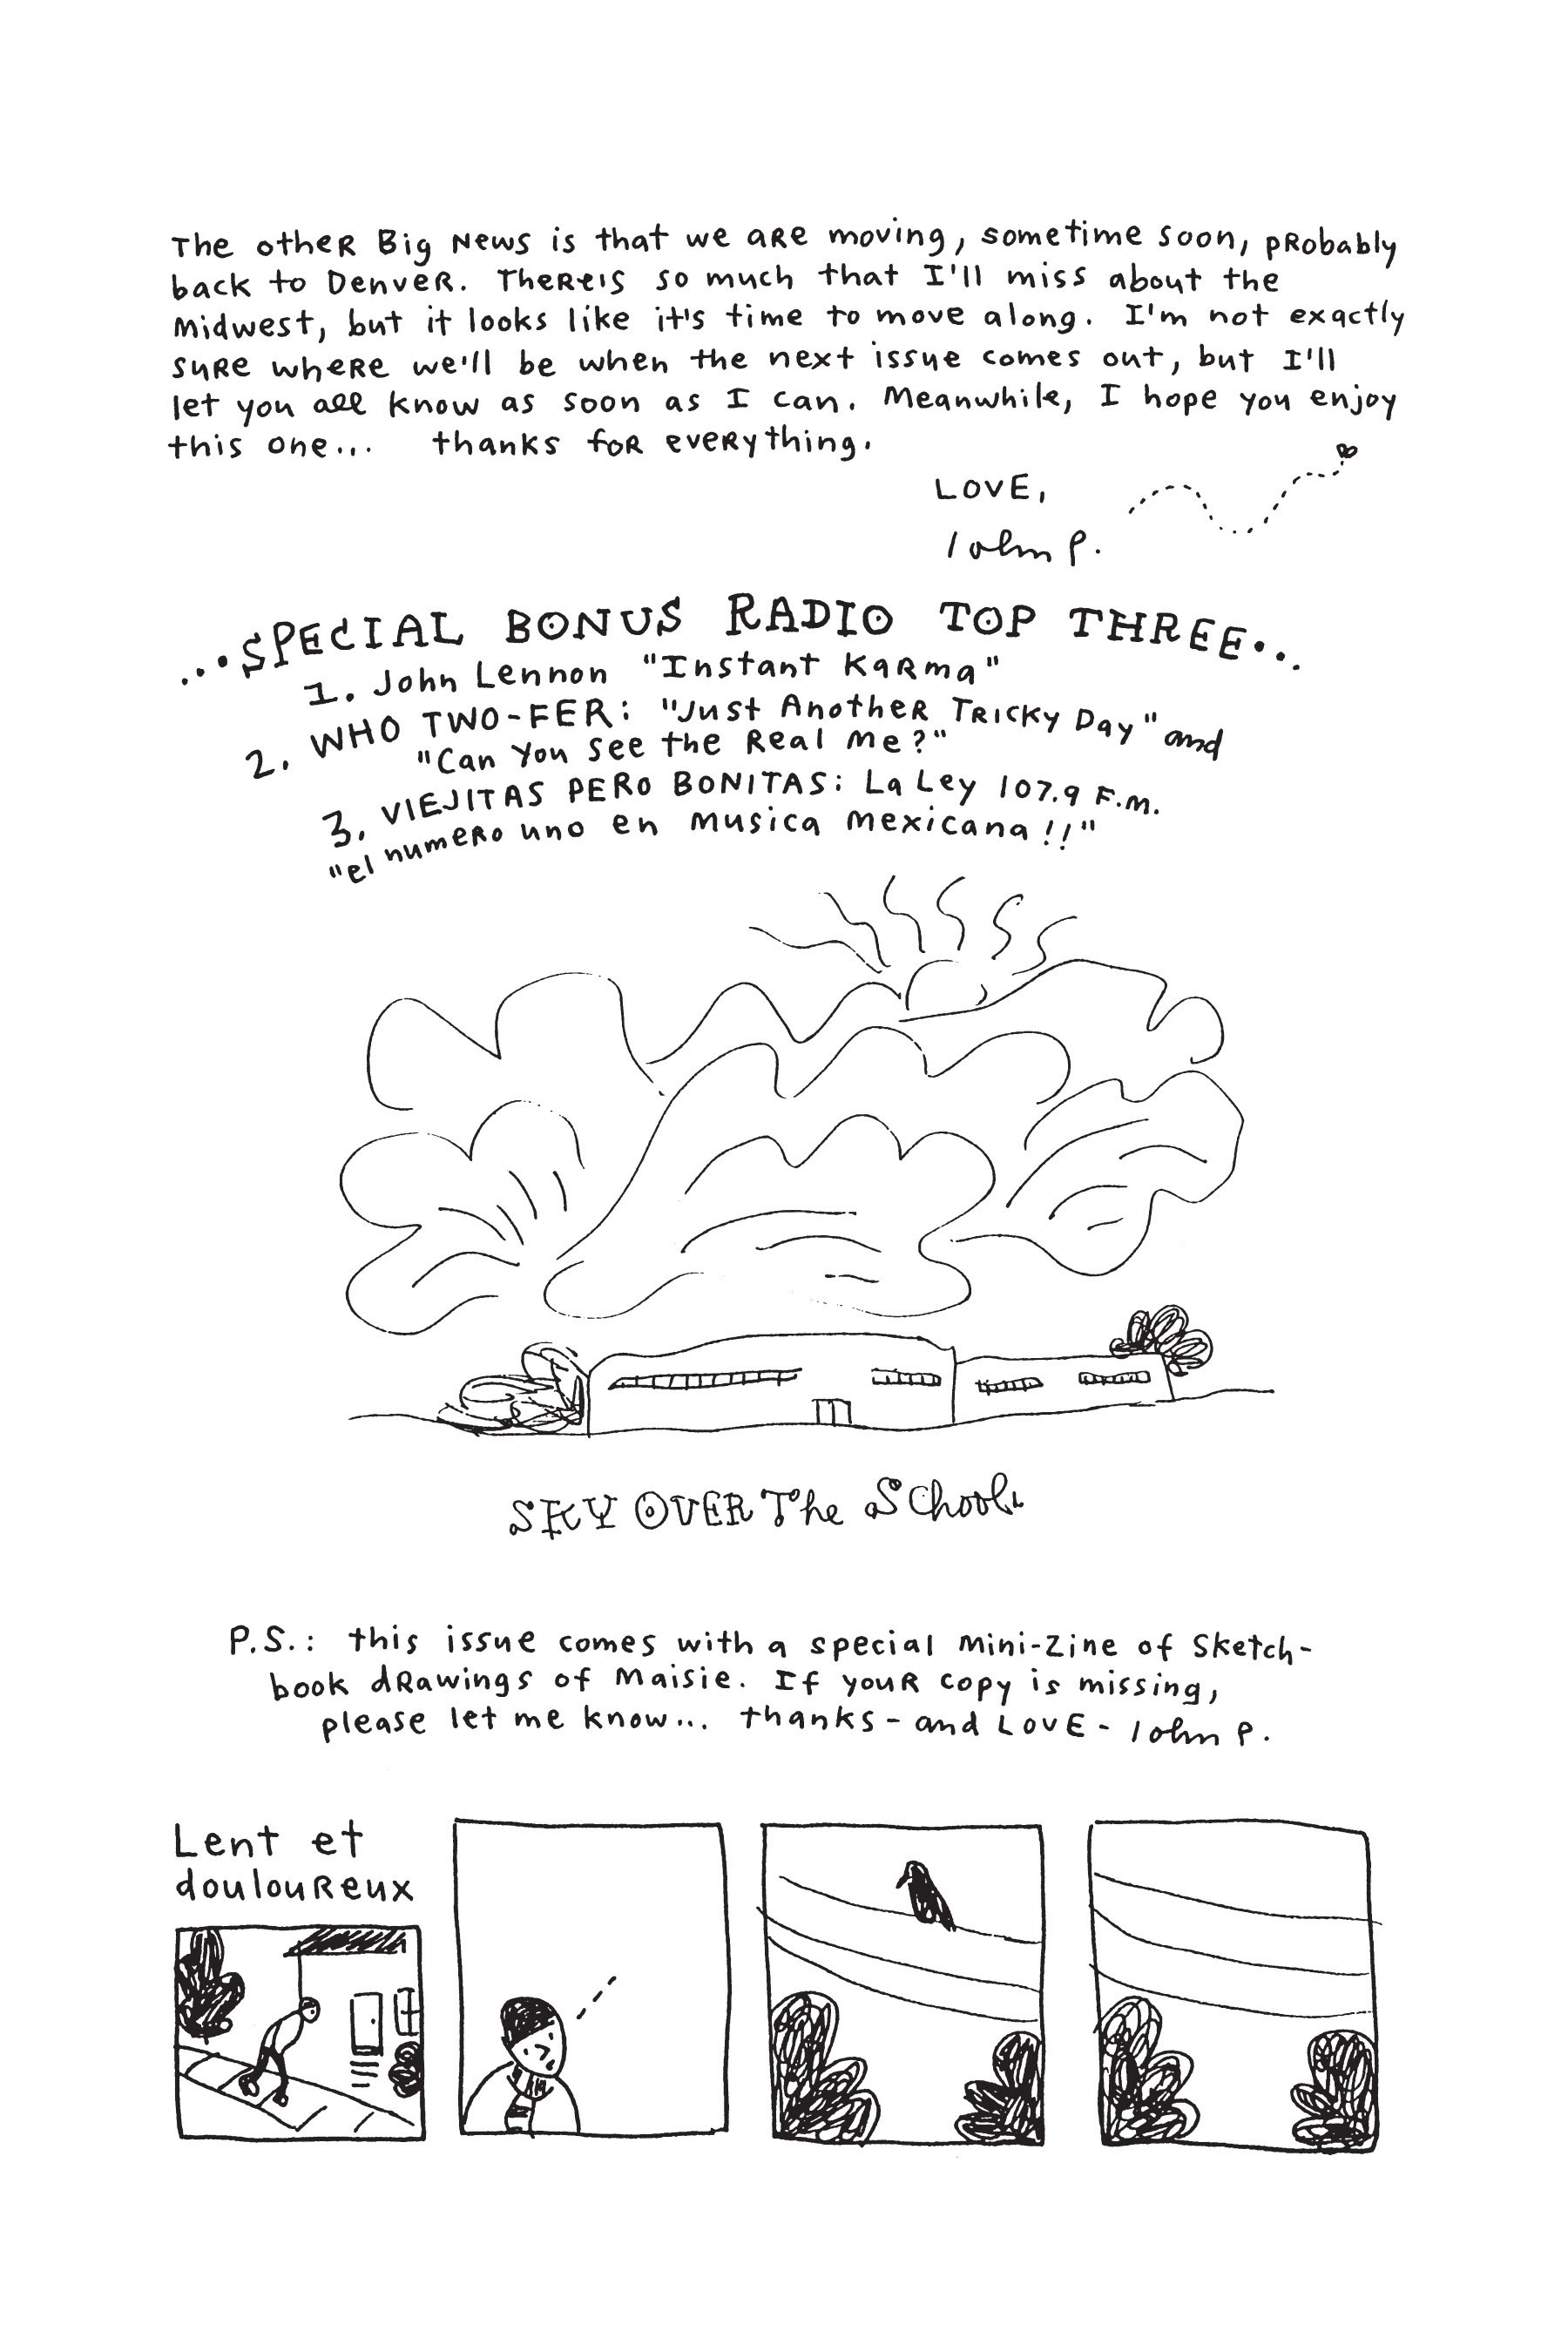 The other Big News is that we are moving, sometime soon, probably
back to Denver. There is so much that I'll miss about the
midwest, but it looks like it's time to move along. I'm not exactly
sure where we'll be when the next issue comes out, but I'll
let you all know as soon as I can. Meanwhile, I hope you enjoy
this one... thanks for everything.
LOVE,
John P.
...SPECIAL BONUS RADIO TOP THREE...
1. John Lennon "Instant Karma"
2. WHO TWO-FER: "Just Another Tricky Day" and
"Can You See the Real Me?"
3. VIEJITAS PERO BONITAS: La Ley 107.9 F.M.
"el numero uno en musica mexicana!!"
SKY OVER The School
P.S.: this issue comes with a special mini-zine of Sketch-
book drawings of Maisie. If your copy is missing,
please let me know... thanks - and LOVE - John P.
Lent et
douloureux